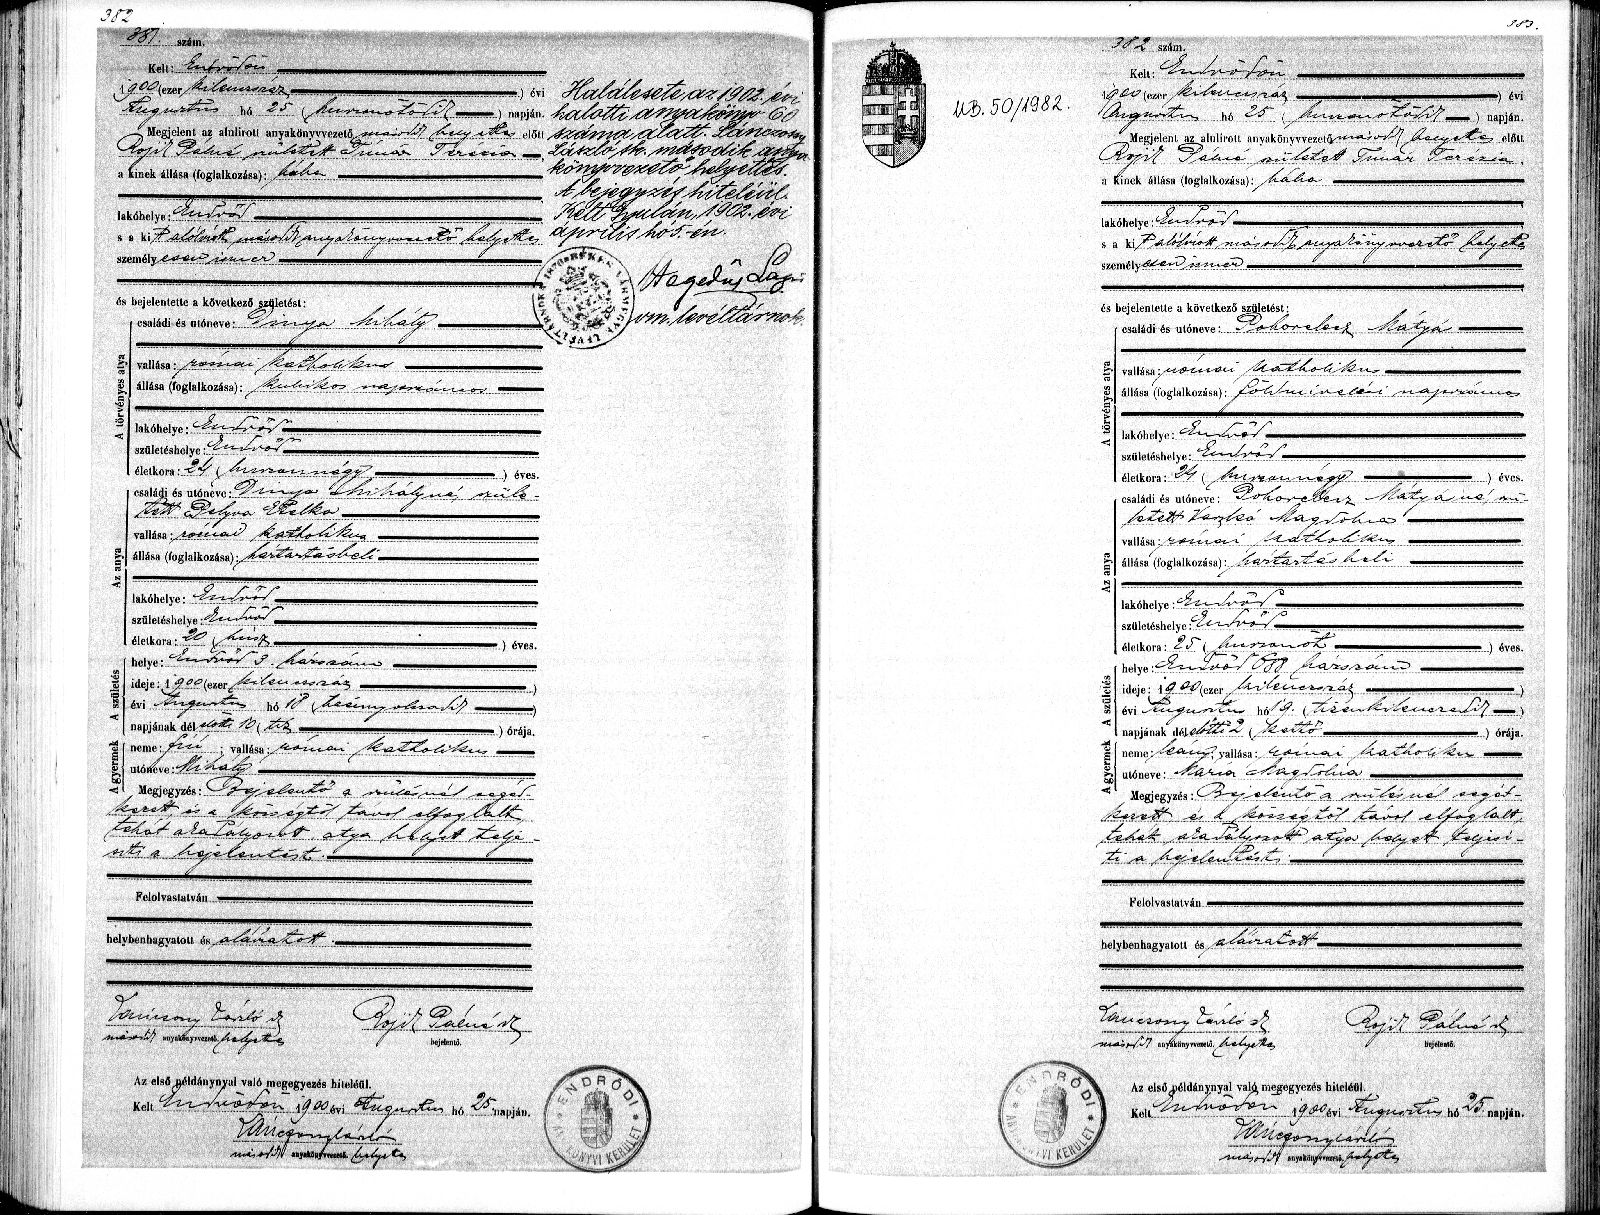 382
381. szám.
Kelt: Endrődön
1900 (ezer kilencszáz ) évi
Augusztus hó 25 ( huszonötödik ) napján.
Megjelent az alulirott anyakönyvvezető másodh helyettes előtt
Rojik Pálné született Tímár Terézia
a kinek állása (foglalkozása): bába
lakóhelye: Endrőd
s a kit alólirott másodh anyakönyvvezető helyettes
személyesen ismer
és bejelentette a következő születést:
A törvényes atya
családi és utóneve: Dinya Mihály
vallása: római katholikus
állása (foglalkozása): kubikos napszámos
lakóhelye: Endrőd
születéshelye: Endrőd
életkora: 24 ( huszonnégy ) éves.
Az anya
családi és utóneve: Dinya Mihályné, szüle-
tett Pelyva Etelka
vallása: római katholikus
állása (foglalkozása): háztartásbeli
lakóhelye: Endrőd
születéshelye: Endrőd
életkora: 20 ( húsz ) éves.
A születés
helye: Endrőd 3. házszám
ideje: 1900 (ezer kilencszáz )
évi Augusztus hó 18 ( tizennyolcadik )
napjának délelőtti 10 ( tíz ) órája.
A gyermek
neme: fiú ; vallása: római katholikus
utóneve: Mihály
Megjegyzés: Bejelentő a szülésnél segéd-
kezett, és a községtől távol elfoglalt,
tehát akadályozott atya helyett telje-
síti a bejelentést.
Felolvastatván
helybenhagyatott és aláiratott.
Lánczony László sk Rojik Pálné sk
másodh anyakönyvvezető. helyettes bejelentő.
Az első példánynyal való megegyezés hiteléül.
Kelt Endrődön 1900 évi Augusztus hó 25 napján.
Lánczony László
másodh anyakönyvvezető. helyettes
ENDRŐDI
ANYAKÖNYVI KERÜLET
Halálesete az 1902. évi
halotti anyakönyv 60
száma alatt. Lánczony
László sk. második anya-
könyvvezető helyettes.
A bejegyzés hiteléül.
Kelt Gyulán, 1902. évi
április hó 5.-én.
Hegedűs Lajos
vm. levéltárnok.
BÉKÉS VÁRMEGYE LEVÉLTÁRNOKA 1876
UB. 50/1982.
383.
382 szám.
Kelt: Endrődön
1900 (ezer kilencszáz ) évi
Augusztus hó 25 ( huszonötödik ) napján.
Megjelent az alulirott anyakönyvvezető másodh helyettes előtt
Rojik Pálné született Tímár Terézia.
a kinek állása (foglalkozása): bába
lakóhelye: Endrőd
s a kit alólirott másodh anyakönyvvezető helyettes
személyesen ismer
és bejelentette a következő születést:
A törvényes atya
családi és utóneve: Pohorelecz Mátyás
vallása: római katholikus
állása (foglalkozása): földmivelési napszámos
lakóhelye: Endrőd
születéshelye: Endrőd
életkora: 24 ( huszonnégy ) éves.
Az anya
családi és utóneve: Pohorelecz Mátyásné, szü-
letett Vaszkó Magdolna
vallása: római katholikus
állása (foglalkozása): háztartásbeli
lakóhelye: Endrőd
születéshelye: Endrőd
életkora: 25 ( huszonöt ) éves.
A születés
helye: Endrőd 688 házszám
ideje: 1900 (ezer kilencszáz )
évi Augusztus hó 19. ( tizenkilencedik )
napjának délelőtti 2 ( kettő ) órája.
A gyermek
neme: leány; vallása: római katholikus
utóneve: Mária Magdolna
Megjegyzés: Bejelentő a szülésnél segéd-
kezett és a községtől távol elfoglalt,
tehát akadályozott atya helyett teljesí-
ti a bejelentést.
Felolvastatván
helybenhagyatott és aláiratott
Lánczony László sk Rojik Pálné sk
másodh anyakönyvvezető. helyettes bejelentő.
Az első példánynyal való megegyezés hiteléül.
Kelt Endrődön 1900 évi Augusztus hó 25 napján.
Lánczony László
másodh anyakönyvvezető. helyettes
ENDRŐDI
ANYAKÖNYVI KERÜLET